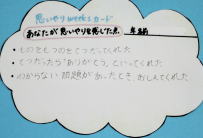 思いやりweeksカード
あなたが思いやりを感じた点 年 名前
・ものをもつのをてつだってくれた
・てつだったら「ありがとう」といってくれた
・わからない問題があったとき、おしえてくれた